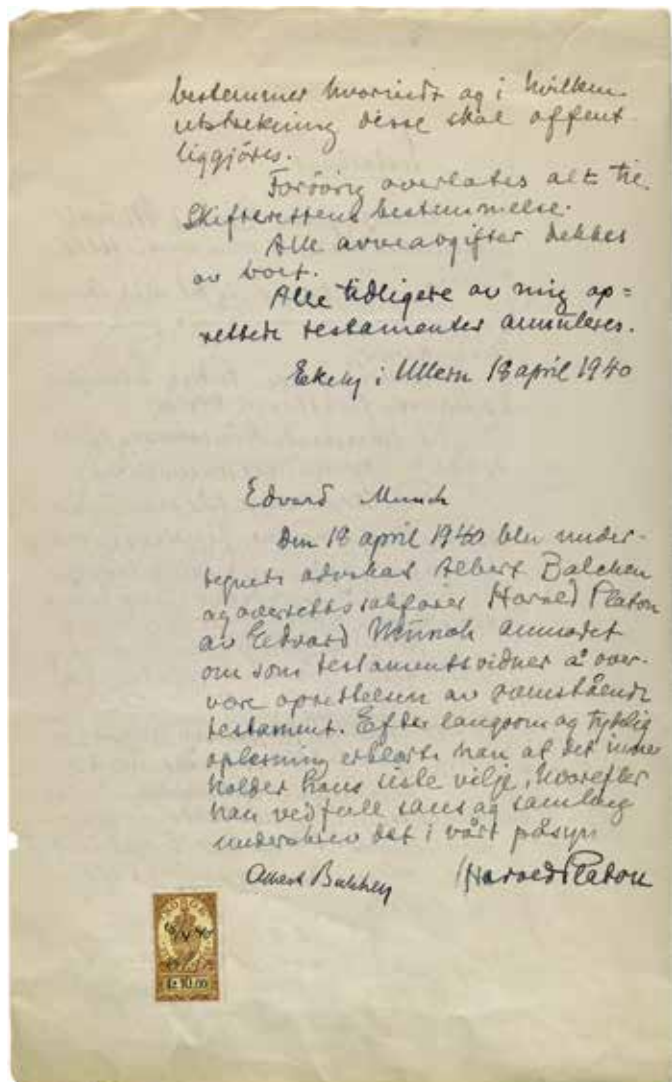 bestemmer hvorvidt og i hvilken
utstrekning disse skal offent
liggjöres.
Forövrig overlates alt til
Skifterettens bestemmelse.
Alle arveavgifter dekkes
av boet.
Alle tidligere av mig op=
rettede testamenter annuleres.
Ekely i Ullern 18 april 1940
Edvard Munch
Den 18 april 1940 blev under-
tegnede advokat Albert Balchen
og overrettssakförer Harald Platon
av Edvard Munch anmodet
om som testamentsvidner å over-
være oprettelsen av ovenstående
testament. Efter langsom og tydelig
oplesning erklærte han at det inne
holder hans siste vilje, hvorefter
han ved full sans og samling
underskrev det i vårt påsyn
Albert Balchen Harald Platon
NORGE
Kr. 10.00